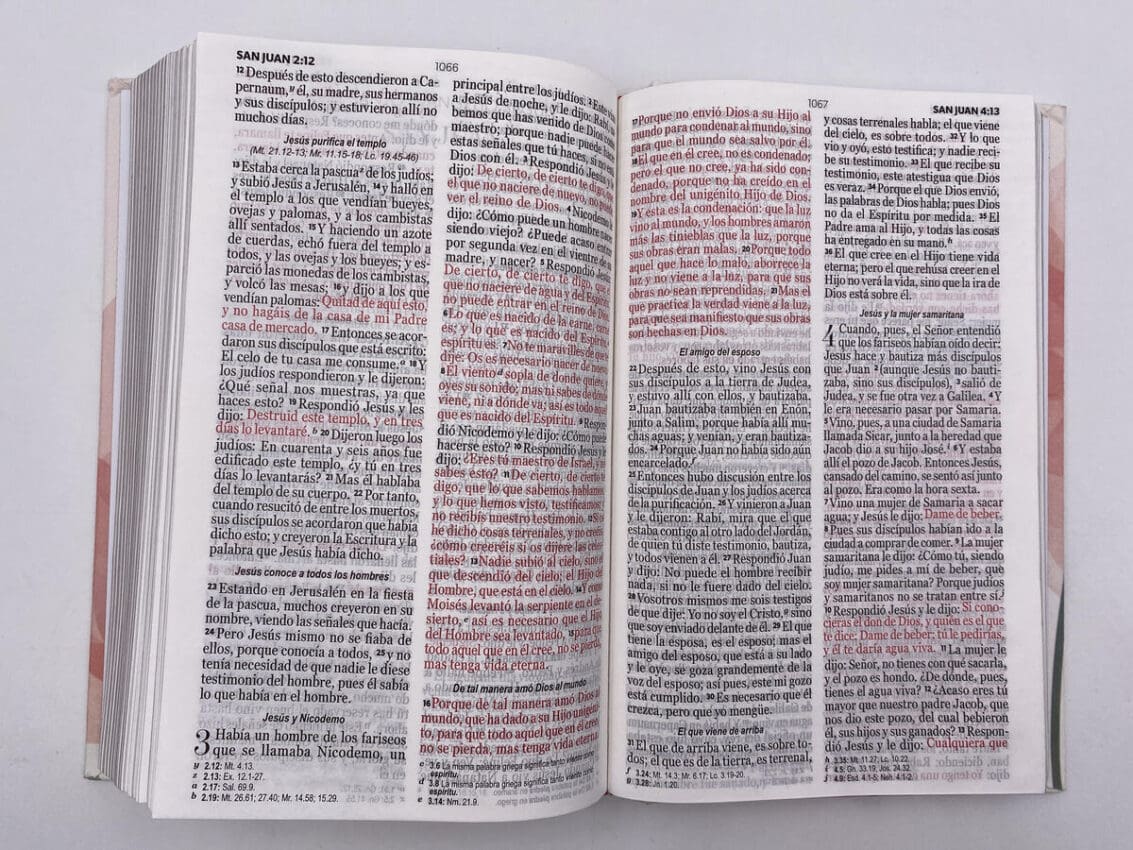 SAN JUAN 2:12
1066
12 Después de esto descendieron a Ca-
pernaum, y él, su madre, sus hermanos
y sus discípulos; y estuvieron allí no
muchos días.
Jesús purifica el templo
(Mt. 21.12-13; Mr. 11.15-18; Lc. 19.45-46)
13 Estaba cerca la pascua z de los judíos;
y subió Jesús a Jerusalén, 14 y halló en
el templo a los que vendían bueyes,
ovejas y palomas, y a los cambistas
allí sentados. 15 Y haciendo un azote
de cuerdas, echó fuera del templo a
todos, y las ovejas y los bueyes; y es-
parció las monedas de los cambistas,
y volcó las mesas; 16 y dijo a los que
vendían palomas: Quitad de aquí esto,
y no hagáis de la casa de mi Padre
casa de mercado. 17 Entonces se acor-
daron sus discípulos que está escrito:
El celo de tu casa me consume. a 18 Y
los judíos respondieron y le dijeron:
¿Qué señal nos muestras, ya que
haces esto? 19 Respondió Jesús y les
dijo: Destruid este templo, y en tres
días lo levantaré. b 20 Dijeron luego los
judíos: En cuarenta y seis años fue
edificado este templo, ¿y tú en tres
días lo levantarás? 21 Mas él hablaba
del templo de su cuerpo. 22 Por tanto,
cuando resucitó de entre los muertos,
sus discípulos se acordaron que había
dicho esto; y creyeron la Escritura y la
palabra que Jesús había dicho.
Jesús conoce a todos los hombres
23 Estando en Jerusalén en la fiesta
de la pascua, muchos creyeron en su
nombre, viendo las señales que hacía.
24 Pero Jesús mismo no se fiaba de
ellos, porque conocía a todos, 25 y no
tenía necesidad de que nadie le diese
testimonio del hombre, pues él sabía
lo que había en el hombre.
Jesús y Nicodemo
3 Había un hombre de los fariseos
que se llamaba Nicodemo, un
y 2.12: Mt. 4.13.
z 2.13: Ex. 12.1-27.
a 2.17: Sal. 69.9.
b 2.19: Mt. 26.61; 27.40; Mr. 14.58; 15.29.
principal entre los judíos. 2 Este
a Jesús de noche, y le dijo: Rabí,
bemos que has venido de Dios como
maestro; porque nadie puede hacer
estas señales que tú haces, si no
Dios con él. 3 Respondió Jesús y le
dijo: De cierto, de cierto te digo, que
el que no naciere de nuevo, no puede
ver el reino de Dios. 4 Nicodemo le
dijo: ¿Cómo puede un hombre nacer
siendo viejo? ¿Puede acaso entrar
por segunda vez en el vientre de su
madre, y nacer? 5 Respondió Jesús:
De cierto, de cierto te digo, que el
que no naciere de agua y del Espíritu,
no puede entrar en el reino de Dios.
6 Lo que es nacido de la carne, carne
es; y lo que es nacido del Espíritu,
espíritu es. 7 No te maravilles de que te
dije: Os es necesario nacer de nuevo.
8 El viento d sopla de donde quiere, y
oyes su sonido; mas ni sabes de dónde
viene, ni a dónde va; así es todo aquel
que es nacido del Espíritu. 9 Respon-
dió Nicodemo y le dijo: ¿Cómo puede
hacerse esto? 10 Respondió Jesús y le
dijo: ¿Eres tú maestro de Israel, y no
sabes esto? 11 De cierto, de cierto te
digo, que lo que sabemos hablamos,
y lo que hemos visto, testificamos; y
no recibís nuestro testimonio. 12 Si os
he dicho cosas terrenales, y no creéis,
¿cómo creeréis si os dijere las celes-
tiales? 13 Nadie subió al cielo, sino el
que descendió del cielo; el Hijo del
Hombre, que está en el cielo. 14 Y como
Moisés levantó la serpiente en el de-
sierto, e así es necesario que el Hijo
del Hombre sea levantado, 15 para que
todo aquel que en él cree, no se pierda,
mas tenga vida eterna.
De tal manera amó Dios al mundo
16 Porque de tal manera amó Dios al
mundo, que ha dado a su Hijo unigéni-
to, para que todo aquel que en él cree,
no se pierda, mas tenga vida eterna.
c 3.6 La misma palabra griega significa tanto viento como
espíritu.
d 3.8 La misma palabra griega significa tanto viento como
espíritu.
e 3.14: Nm. 21.9.
1067
SAN JUAN 4:13
17 Porque no envió Dios a su Hijo al
mundo para condenar al mundo, sino
para que el mundo sea salvo por él.
18 El que en él cree, no es condenado;
pero el que no cree, ya ha sido con-
denado, porque no ha creído en el
nombre del unigénito Hijo de Dios.
19 Y esta es la condenación: que la luz
vino al mundo, y los hombres amaron
más las tinieblas que la luz, porque
sus obras eran malas. 20 Porque todo
aquel que hace lo malo, aborrece la
luz y no viene a la luz, para que sus
obras no sean reprendidas. 21 Mas el
que practica la verdad viene a la luz,
para que sea manifiesto que sus obras
son hechas en Dios.
El amigo del esposo
22 Después de esto, vino Jesús con
sus discípulos a la tierra de Judea,
y estuvo allí con ellos, y bautizaba.
23 Juan bautizaba también en Enón,
junto a Salim, porque había allí mu-
chas aguas; y venían, y eran bautiza-
dos. 24 Porque Juan no había sido aún
encarcelado. f
25 Entonces hubo discusión entre los
discípulos de Juan y los judíos acerca
de la purificación. 26 Y vinieron a Juan
y le dijeron: Rabí, mira que el que
estaba contigo al otro lado del Jordán,
de quien tú diste testimonio, bautiza,
y todos vienen a él. 27 Respondió Juan
y dijo: No puede el hombre recibir
nada, si no le fuere dado del cielo.
28 Vosotros mismos me sois testigos
de que dije: Yo no soy el Cristo, g sino
que soy enviado delante de él. 29 El que
tiene la esposa, es el esposo; mas el
amigo del esposo, que está a su lado
y le oye, se goza grandemente de la
voz del esposo; así pues, este mi gozo
está cumplido. 30 Es necesario que él
crezca, pero que yo mengüe.
El que viene de arriba
31 El que de arriba viene, es sobre to-
dos; el que es de la tierra, es terrenal,
f 3.24: Mt. 14.3; Mr. 6.17; Lc. 3.19-20.
g 3.28: Jn. 1.20.
y cosas terrenales habla; el que viene
del cielo, es sobre todos. 32 Y lo que
vio y oyó, esto testifica; y nadie reci-
be su testimonio. 33 El que recibe su
testimonio, este atestigua que Dios
es veraz. 34 Porque el que Dios envió,
las palabras de Dios habla; pues Dios
no da el Espíritu por medida. 35 El
Padre ama al Hijo, y todas las cosas
ha entregado en su mano. h
36 El que cree en el Hijo tiene vida
eterna; pero el que rehúsa creer en el
Hijo no verá la vida, sino que la ira de
Dios está sobre él.
Jesús y la mujer samaritana
4 Cuando, pues, el Señor entendió
que los fariseos habían oído decir:
Jesús hace y bautiza más discípulos
que Juan 2 (aunque Jesús no bauti-
zaba, sino sus discípulos), 3 salió de
Judea, y se fue otra vez a Galilea. 4 Y
le era necesario pasar por Samaria.
5 Vino, pues, a una ciudad de Samaria
llamada Sicar, junto a la heredad que
Jacob dio a su hijo José. i 6 Y estaba
allí el pozo de Jacob. Entonces Jesús,
cansado del camino, se sentó así junto
al pozo. Era como la hora sexta.
7 Vino una mujer de Samaria a sacar
agua; y Jesús le dijo: Dame de beber.
8 Pues sus discípulos habían ido a la
ciudad a comprar de comer. 9 La mujer
samaritana le dijo: ¿Cómo tú, siendo
judío, me pides a mí de beber, que
soy mujer samaritana? Porque judíos
y samaritanos no se tratan entre sí. j
10 Respondió Jesús y le dijo: Si cono-
cieras el don de Dios, y quién es el que
te dice: Dame de beber; tú le pedirías,
y él te daría agua viva. 11 La mujer le
dijo: Señor, no tienes con qué sacarla,
y el pozo es hondo. ¿De dónde, pues,
tienes el agua viva? 12 ¿Acaso eres tú
mayor que nuestro padre Jacob, que
nos dio este pozo, del cual bebieron
él, sus hijos y sus ganados? 13 Respon-
dió Jesús y le dijo: Cualquiera que
h 3.35: Mt. 11.27; Lc. 10.22.
i 4.5: Gn. 33.19; Jos. 24.32.
j 4.9: Esd. 4.1-5; Neh. 4.1-2.